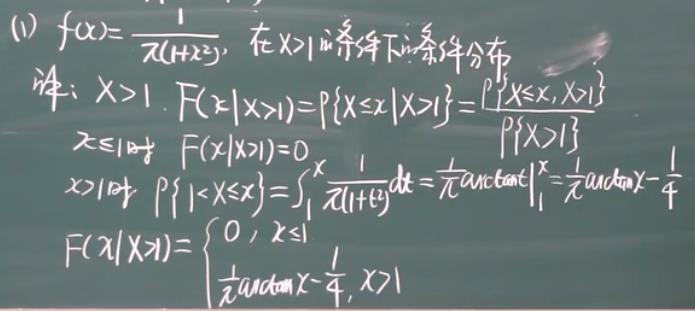 (1) f(x)=1/π(1+x²), 在X>1的条件下的条件分布
解: X>1. F(x|X>1)=P{X≤x|X>1}=P{X≤x, X>1}/P{X>1}
x≤1时 F(x|X>1)=0
x>1时 P{1<X≤x}=∫₁ˣ 1/π(1+t²) dt=1/π arctant|₁ˣ=1/π arctanx-1/4
F(x|X>1)={0, x≤1
1/π arctanx-1/4, x>1